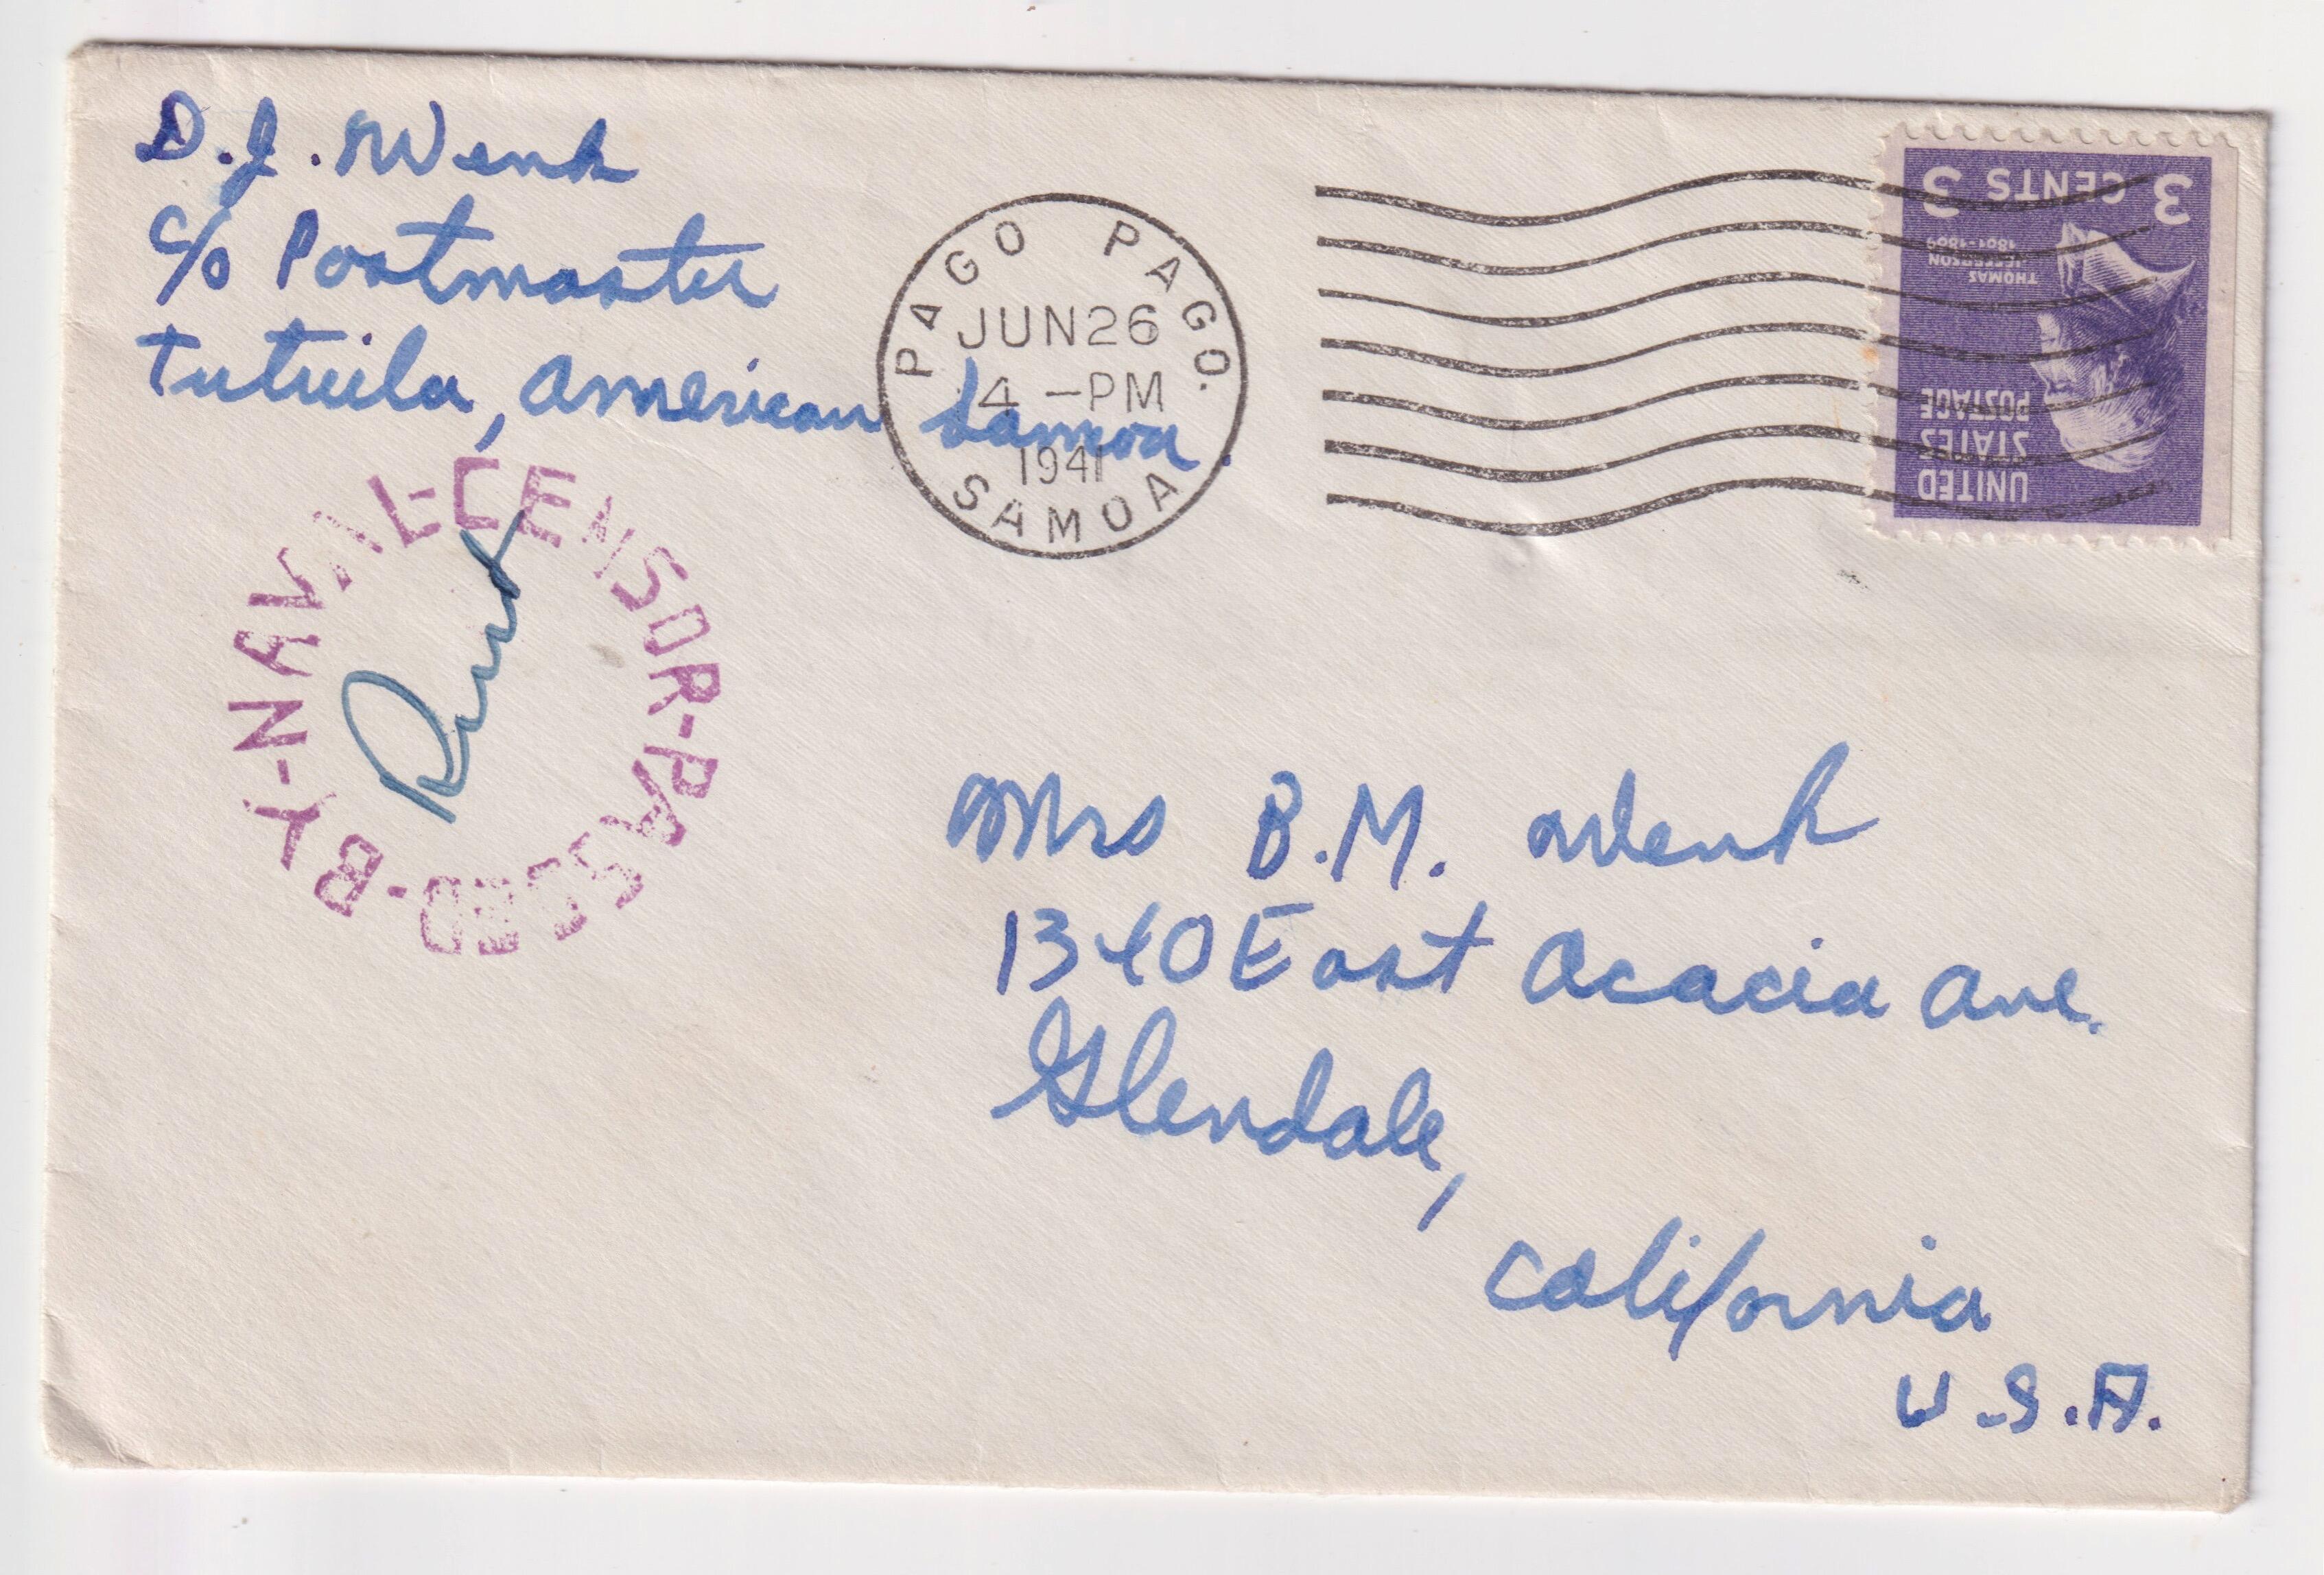 D.J. Wenk
c/o Postmaster
Tutuila, American Samoa.
PAGO PAGO.
JUN 26
4 -PM
1941
SAMOA
3 CENTS 3
THOMAS
JEFFERSON
1801-1809
UNITED
STATES
POSTAGE
PASSED-BY-NAVAL-CENSOR-
Mrs B.M. Wenk
1340 East Acacia Ave.
Glendale,
California
U.S.A.